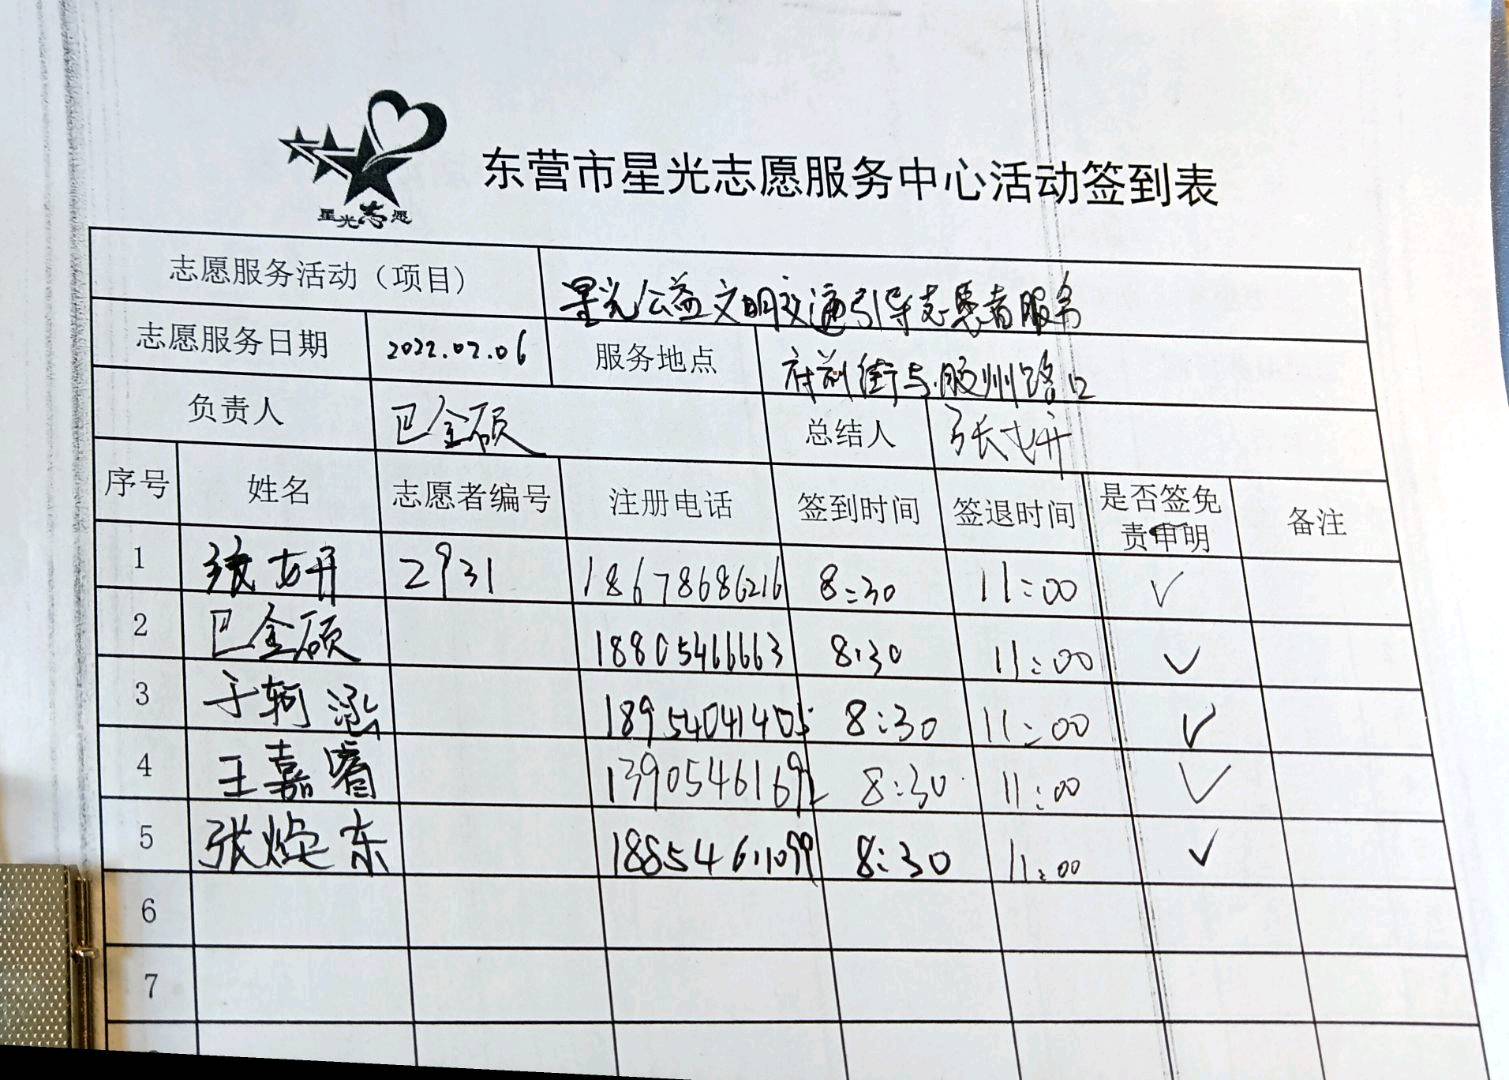 星光志愿
东营市星光志愿服务中心活动签到表
志愿服务活动（项目） 星光公益文明交通引导志愿者服务
志愿服务日期 2022.02.06 服务地点 府前街与胶州路口
负责人 巴金硕 总结人 张
序号 姓名 志愿者编号 注册电话 签到时间 签退时间 是否签免责申明 备注
1 张 2931 18678686216 8:30 11:00 ✓
2 巴金硕 18805466663 8:30 11:00 ✓
3 于轲泓 18954041405 8:30 11:00 ✓
4 王嘉睿 8:30 11:00 ✓
5 张焕东 8:30 11:00 ✓
6
7